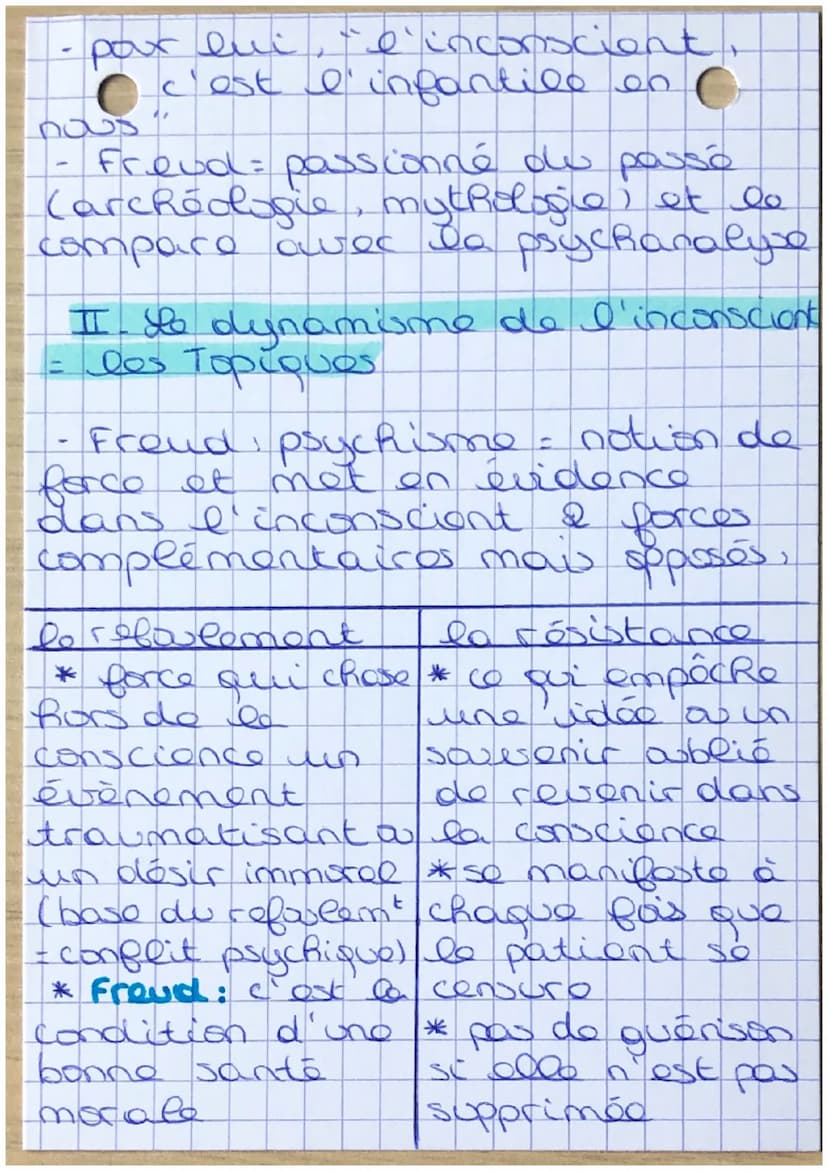 - pour lui, "l'inconscient,
c'est l'infantile en
nous"
- Freud = passionné du passé
(archéologie, mythologie) et le
compare avec la psychanalyse
II - Le dynamisme de l'inconscient
= les Topiques
- Freud : psychisme = notion de
force et met en évidence
dans l'inconscient 2 forces
complémentaires mais opposés :
le refoulement
* force qui chasse
hors de la
conscience un
évènement
traumatisant ou
un désir immoral
(base du refoulemt
= conflit psychique)
* Freud : c'est la
condition d'une
bonne santé
morale
la résistance
* ce qui empêche
une idée ou un
souvenir oublié
de revenir dans
la conscience
* se manifeste à
chaque fois que
le patient se
censure
* pas de guérison
si elle n'est pas
supprimée